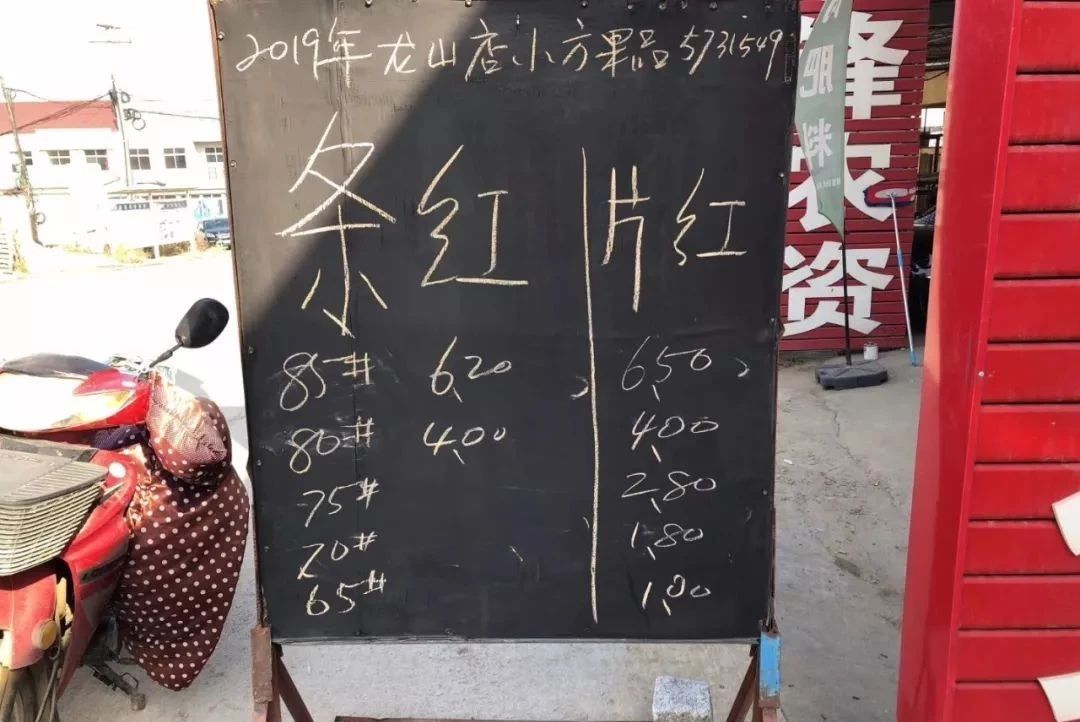 2019年龙山店小方果品5731549
条红 片红
85# 6.20 6.50
80# 4.00 4.00
75# 2.80
70# 1.80
65# 1.00
肥料
农资